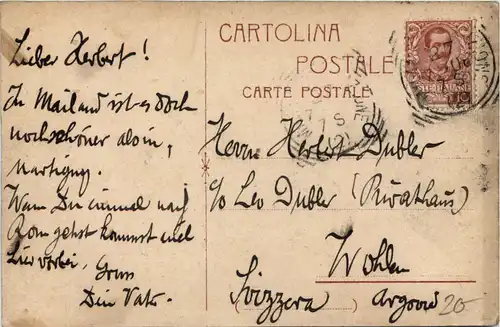 CARTOLINA
POSTALE
CARTE POSTALE
Lieber Herbert!
In Mailand ist es doch
noch schöner als in
Martigny.
Wenn Du einmal nach
Rom gehst kommst
hier vorbei, Gruss
Dein Vater.
Herrn Herbert Dubler
c/o Leo Dubler (Privathaus)
Wohlen
Svizzera
20